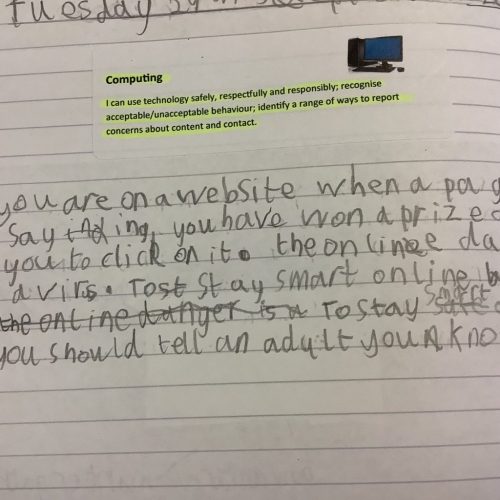 Tuesday
Computing
I can use technology safely, respectfully and responsibly; recognise
acceptable/unacceptable behaviour; identify a range of ways to report
concerns about content and contact.
you are on a website when a pa
say, you have won a prize
you to click on it. the online da
a virs. To stay smart online
the online danger is a To stay smart
you should tell an adult you kno